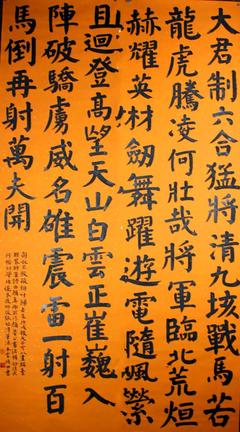 大君制六合猛將清九垓戰馬若
龍虎騰凌何壯哉將軍臨北荒烜
赫耀英材劒舞躍遊電隨飊縈
且迴登高望天山白雲正崔巍入
陣破驕虜威名雄震雷一射百
馬倒再射萬夫開